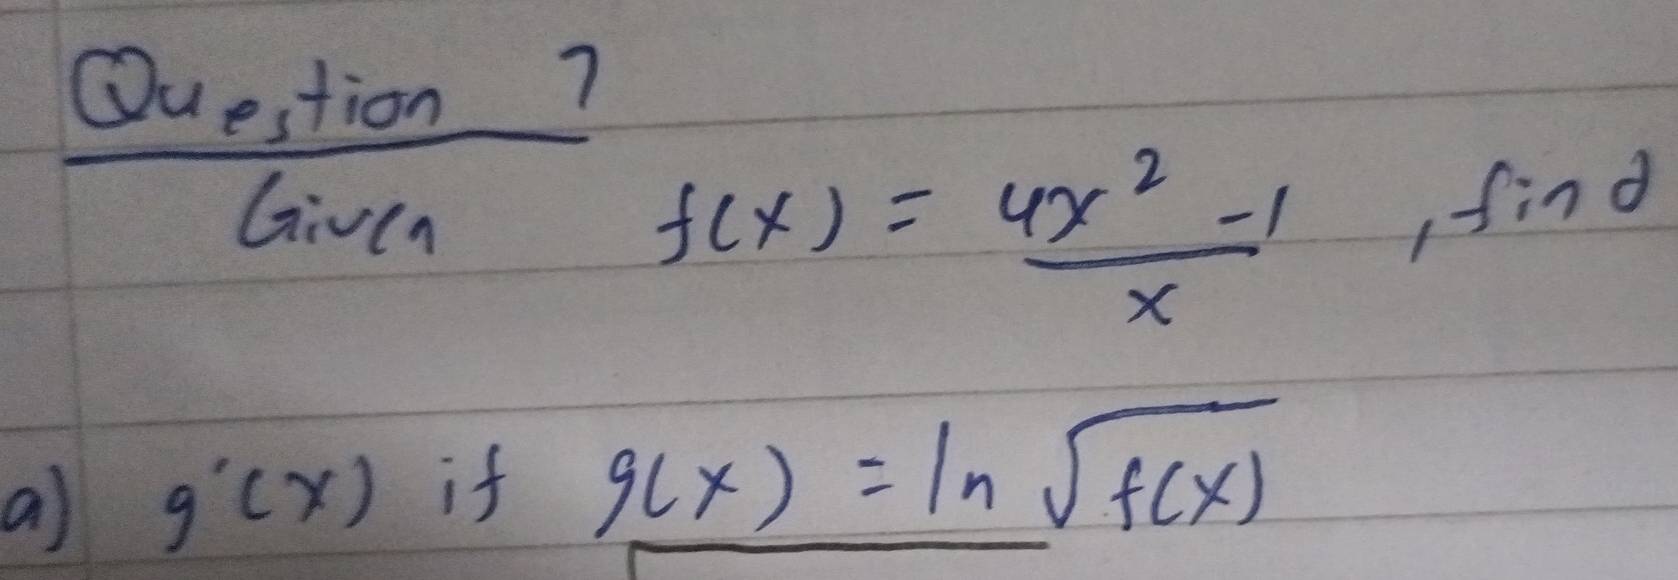 Question 7
Given f(x) = 4x² - 1 / x , find
a) g'(x) if g(x) = ln √f(x)